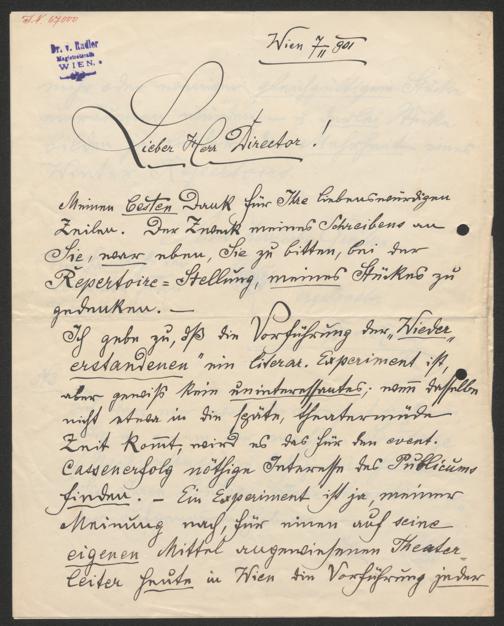 I. N. 67000
Dr. v. Radler
Magistratsrath
WIEN.
Wien 7/II 901
Lieber Herr Director!
Meinen besten Dank für Ihre liebenswürdigen
Zeilen. Der Zweck meines Schreibens an
Sie, war eben, Sie zu bitten, bei der
Repertoire=Stellung, meines Stückes zu
gedenken. —
Ich gebe zu, dß die Vorführung der „Wieder„
erstandenen" ein literar. Experiment ist,
aber gewiß kein uninteressantes; wenn dasselbe
nicht etwa in die späte, theatermüde
Zeit kommt, wird es das für den event.
Cassenerfolg nöthige Interesse des Publicums
finden. — Ein Experiment ist ja, meiner
Meinung nach, für einen auf seine
eigenen Mittel angewiesenen Theater-
leiter heute in Wien die Vorführung jeder